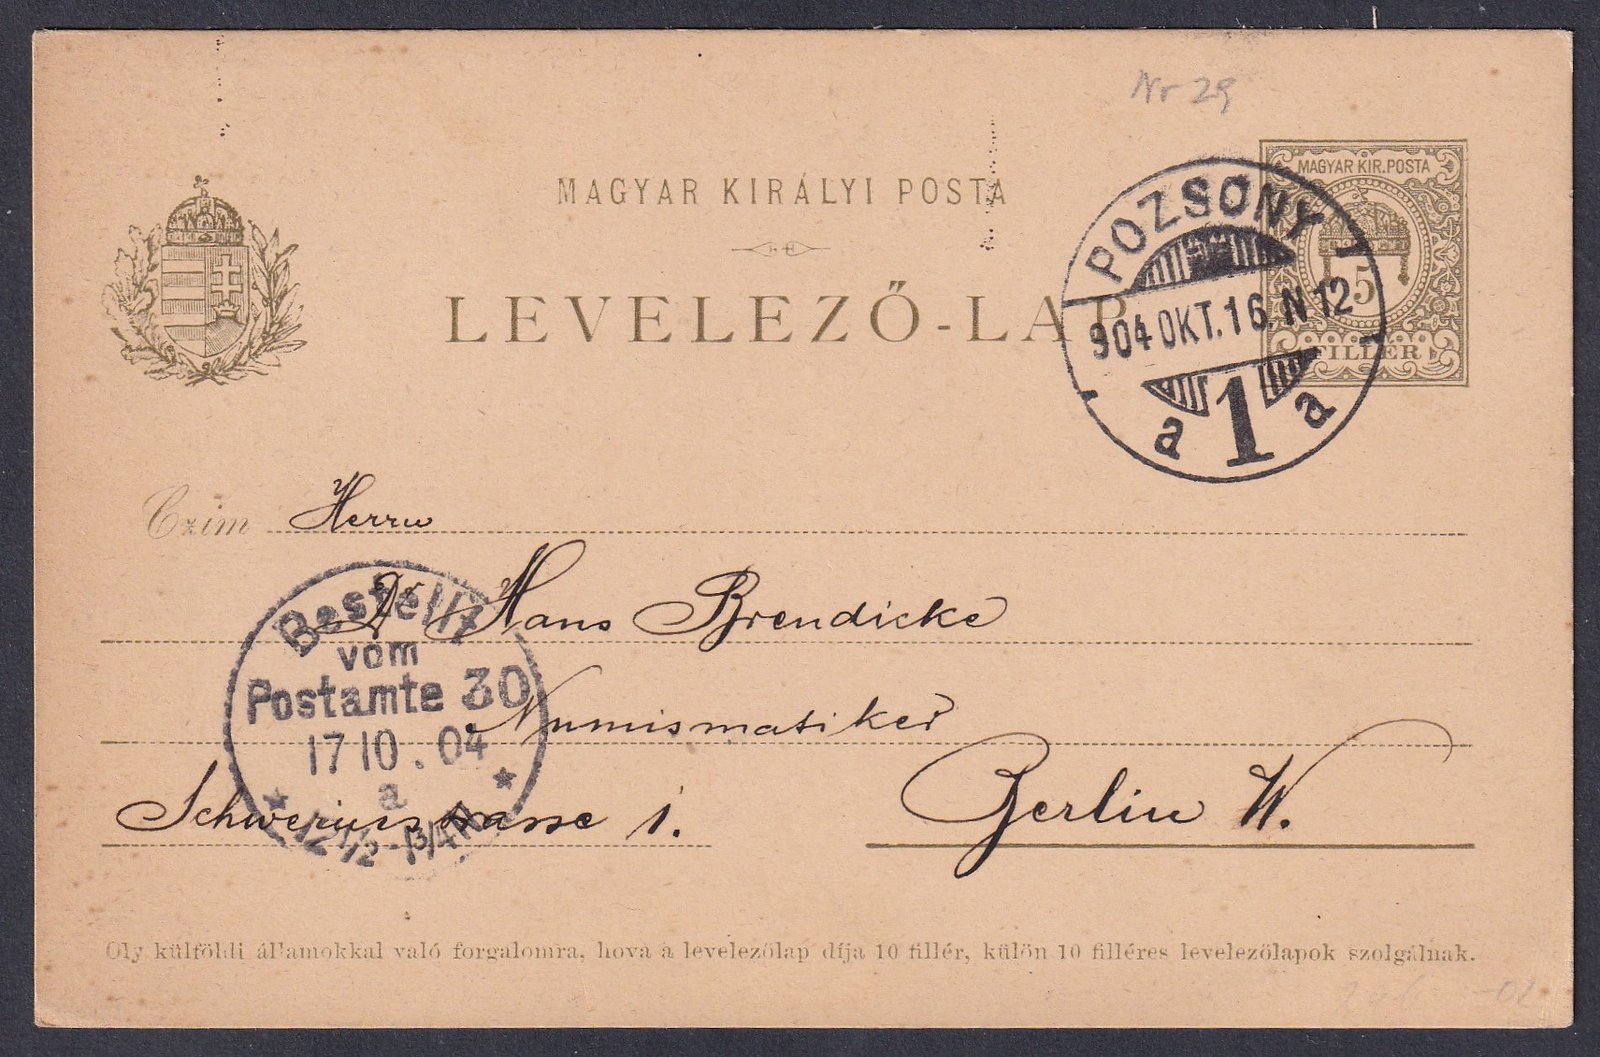 Nr 29
MAGYAR KIR. POSTA
5
FILLÉR
MAGYAR KIRÁLYI POSTA
LEVELEZŐ-LAP
POZSONY
904 OKT. 16. N 12
a 1 a
Czim Herrn
Dr Hans Brendicke
Numismatiker
Schwerinstrasse 1. Berlin W.
Bestellt
vom
Postamte 30
17 10 . 04
a
* 12 1/2 - 1 3/4 N *
Oly külföldi államokkal való forgalomra, hova a levelezőlap díja 10 fillér, külön 10 filléres levelezőlapok szolgálnak.